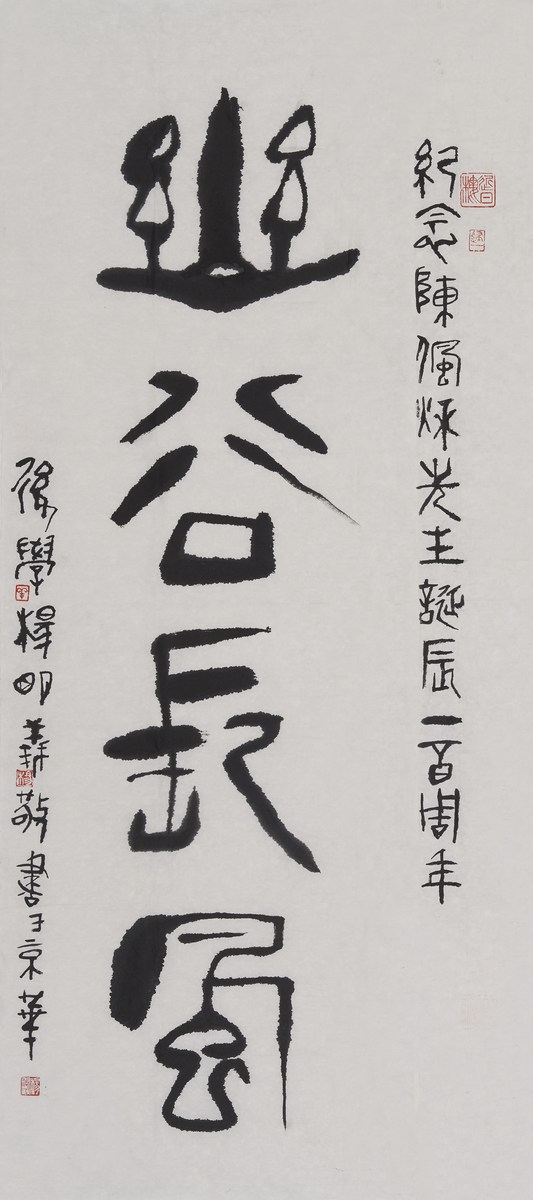 紀念陳佩烁先生誕辰一百周年
幽谷長風
後學 明 敬書于京華